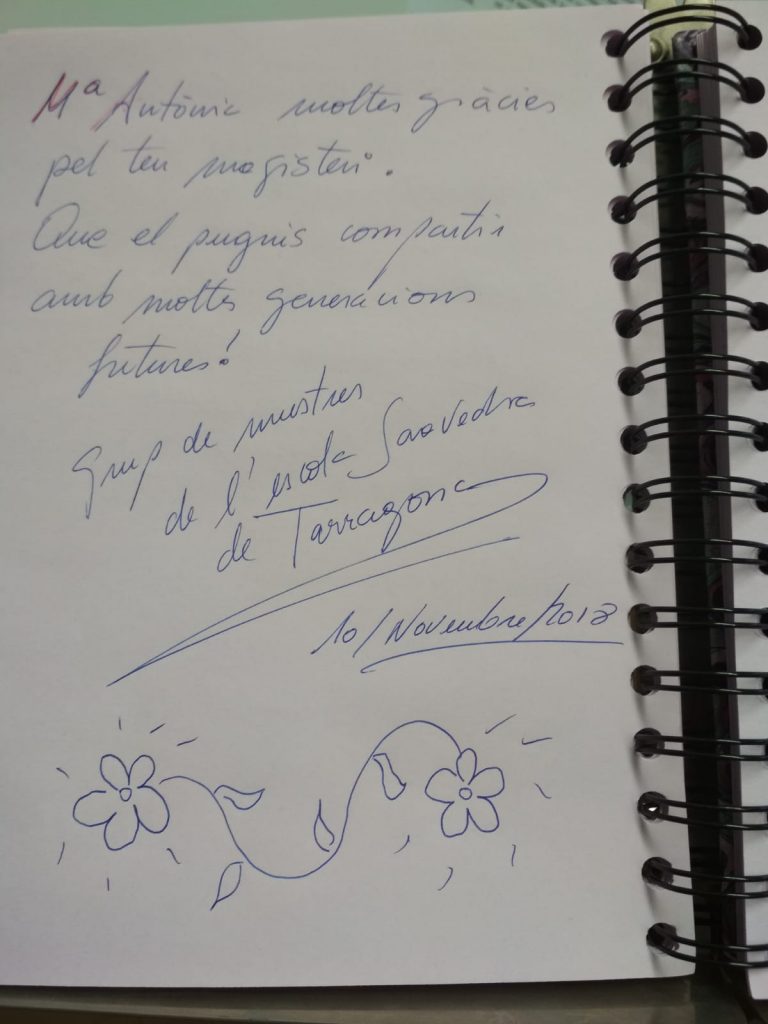 Mª Antònia moltes gràcies
pel teu magisteri.
Que el puguis compartir
amb moltes generacions
futures!
Grup de mestres
de l'escola Saavedra
de Tarragona
10/Novembre/2018